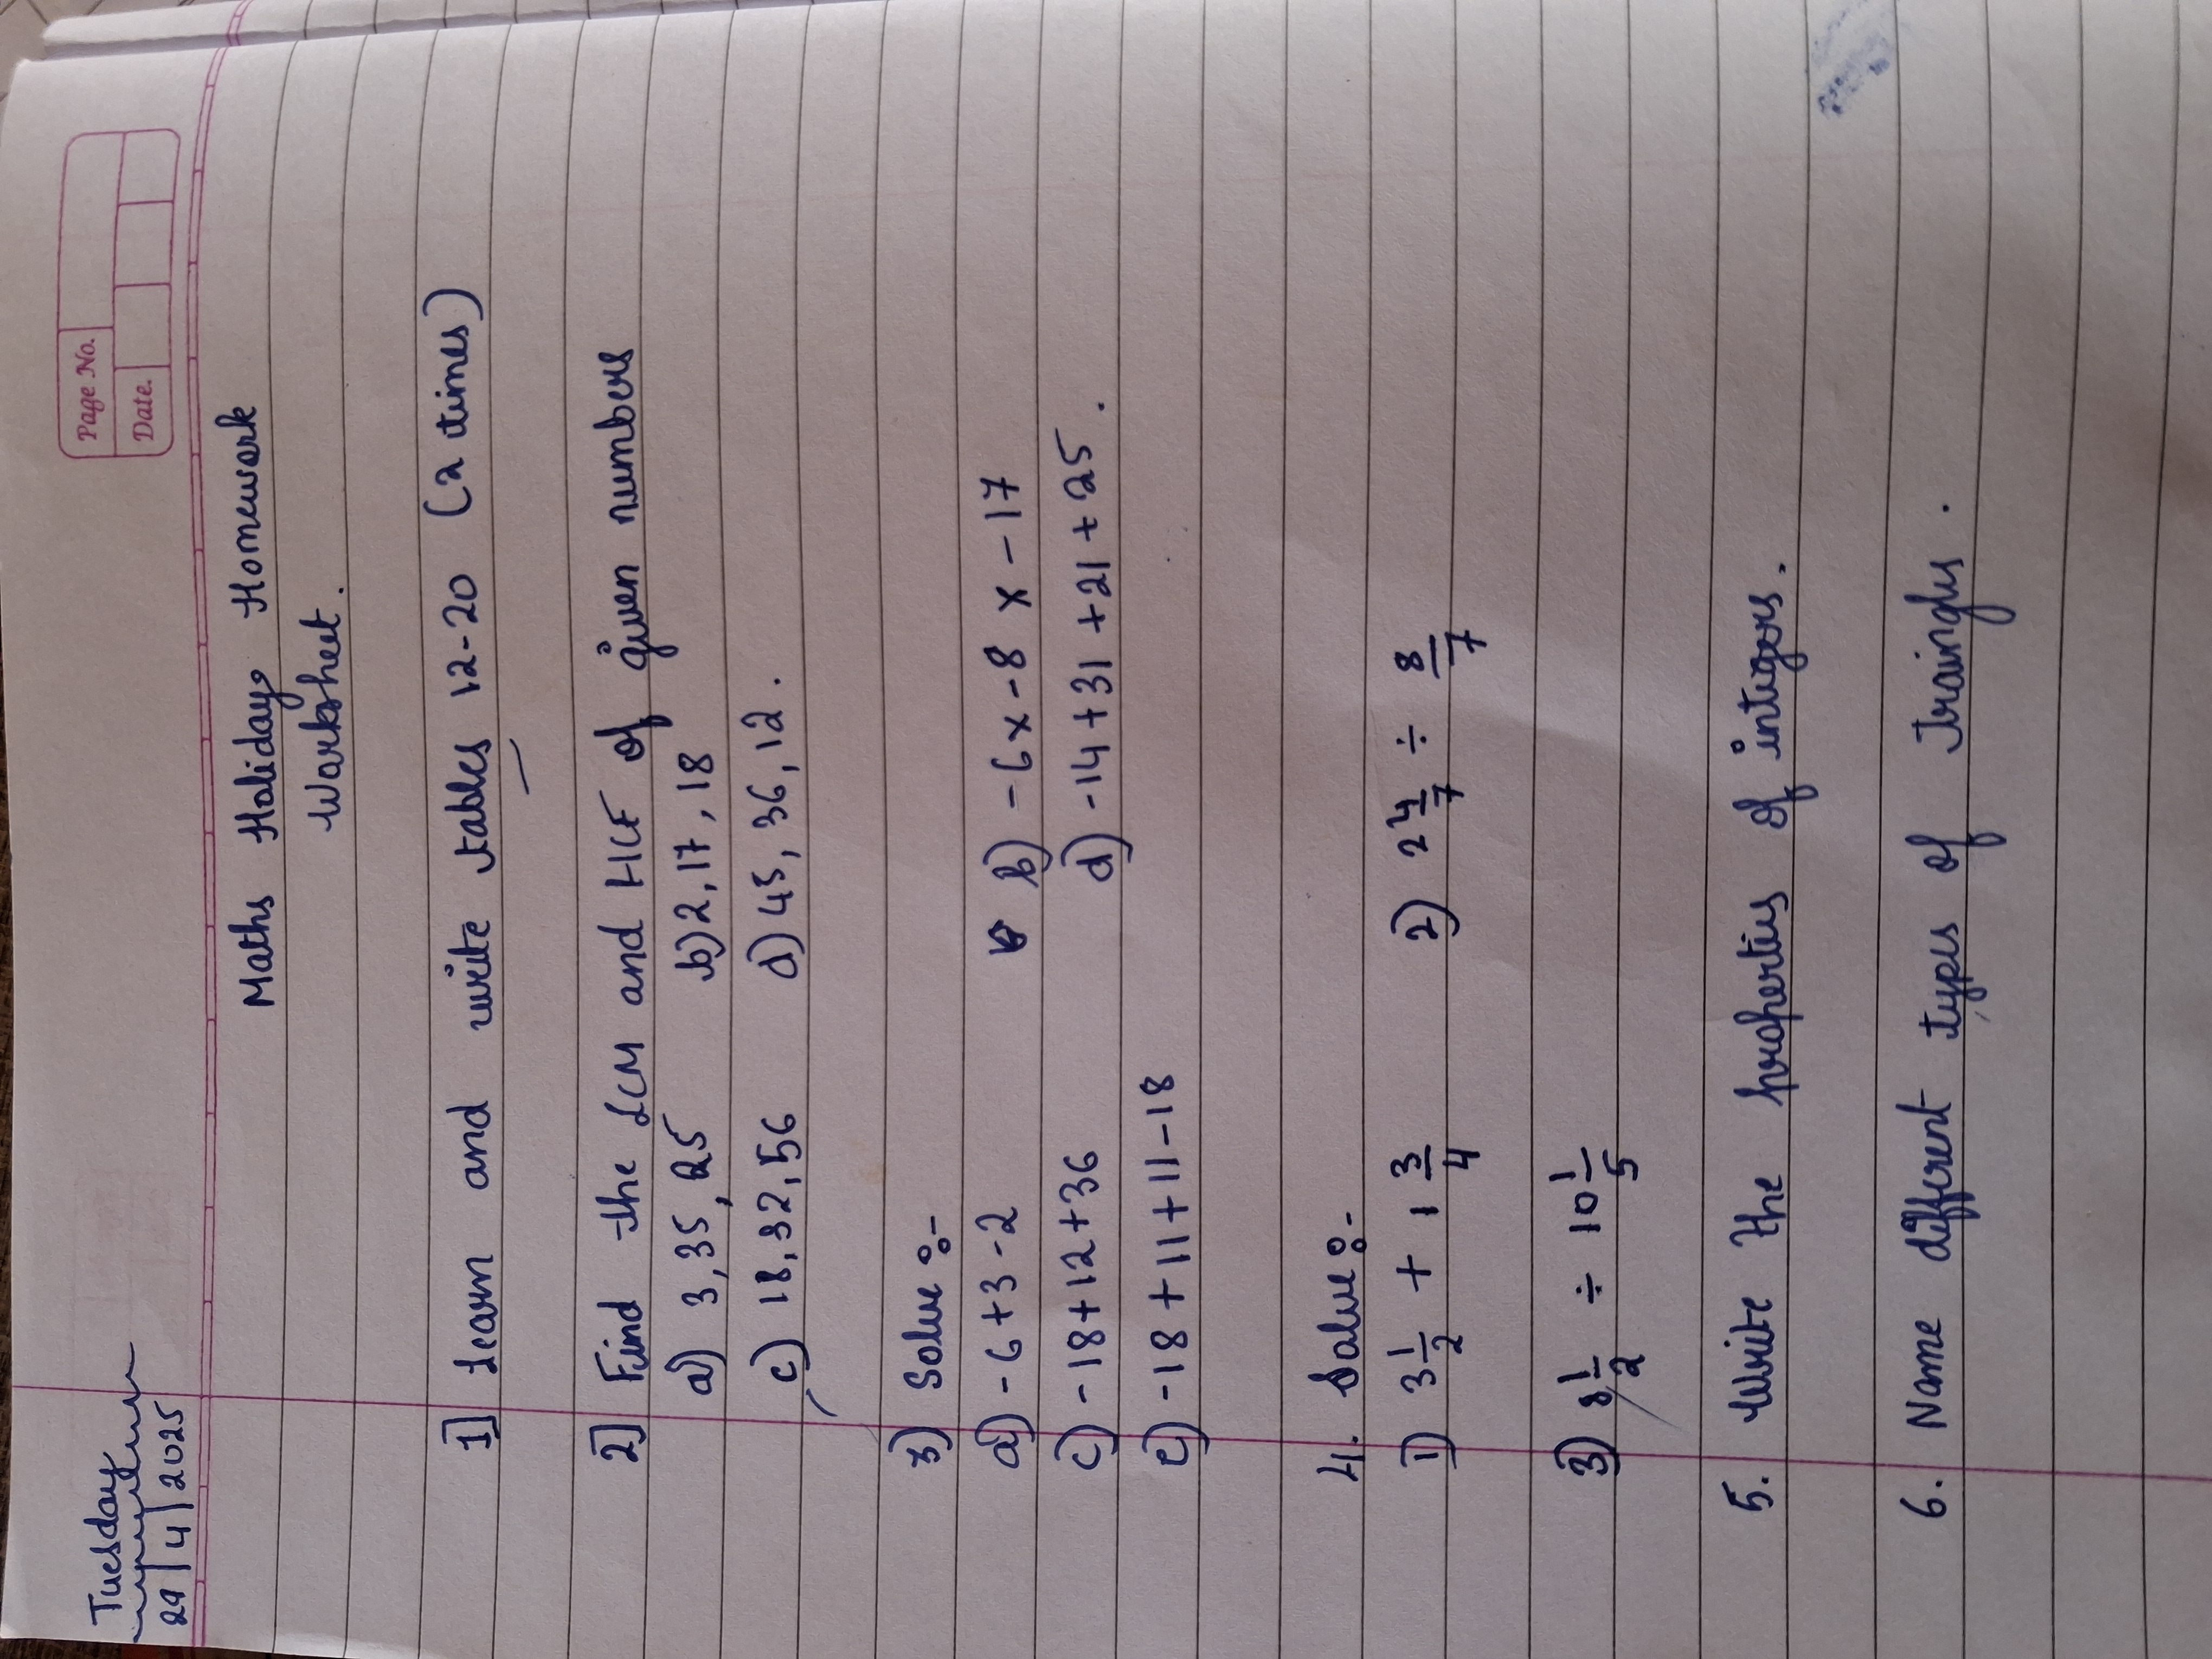 Tuesday
29/4/2025
Page No.
Date.
Maths Holidays Homework
Worksheet.
1] Learn and write tables 12-20 (2 times)
2] Find the LCM and HCF of given numbers
a) 3, 35, 25 b) 2, 17, 18
c) 18, 32, 56 d) 45, 36, 12.
3) Solve :-
a) -6+3-2 b) -6 x -8 x -17
c) -18+12+36 d) -14+31+21+25.
e) -18+11+11-18
4. Solve :-
1) 3 1/2 + 1 3/4 2) 2 4/7 ÷ 8/7
3) 8 1/2 ÷ 10 1/5
5. Write the properties of integers.
6. Name different types of traingles.